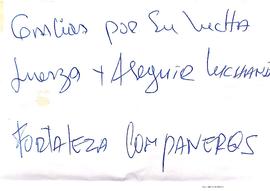 Gracias por su lucha
fuerza y Aseguir luchand
FORTALEZA COMPANEROS